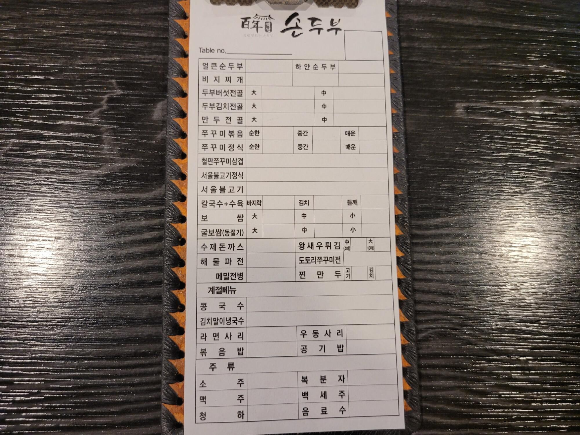 百年目 손두부
Table no.
얼큰순두부 하얀순두부
비지찌개
두부버섯전골 大 中
두부김치전골 大 中
만두전골 大 中
쭈꾸미볶음 순한 중간 매운
쭈꾸미정식 순한 중간 매운
철판쭈꾸미삼겹
서울불고기정식
서울불고기
칼국수+수육 바지락 김치 들깨
보쌈 大 中 小
굴보쌈(동절기) 大 中 小
수제돈까스 왕새우튀김 大
해물파전 도토리쭈꾸미전
메밀전병 찐만두 고기 김치
계절메뉴
콩국수
김치말이냉국수
라면사리 우동사리
볶음밥 공기밥
주류
소주 복분자
맥주 백세주
청하 음료수